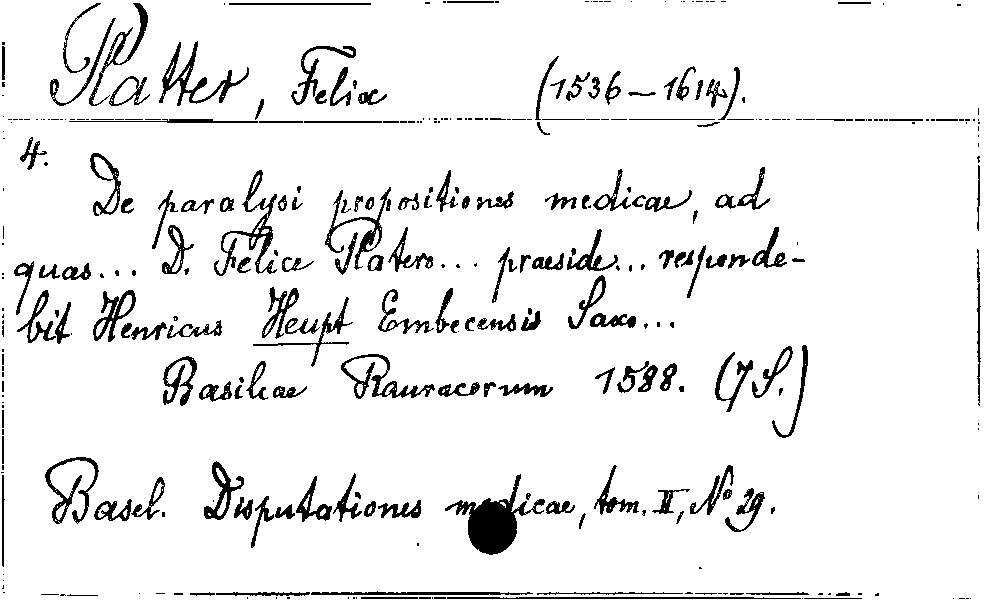 Platter, Felix (1536-1614).
4.
De paralysi propositiones medicae, ad
quas... D. Felice Platero... praeside... responde-
bit Henricus Heupt Embecensis Saxo...
Basileae Rauracorum 1588. (7 S.)
Basel. Disputationes medicae, tom. II, No 29.